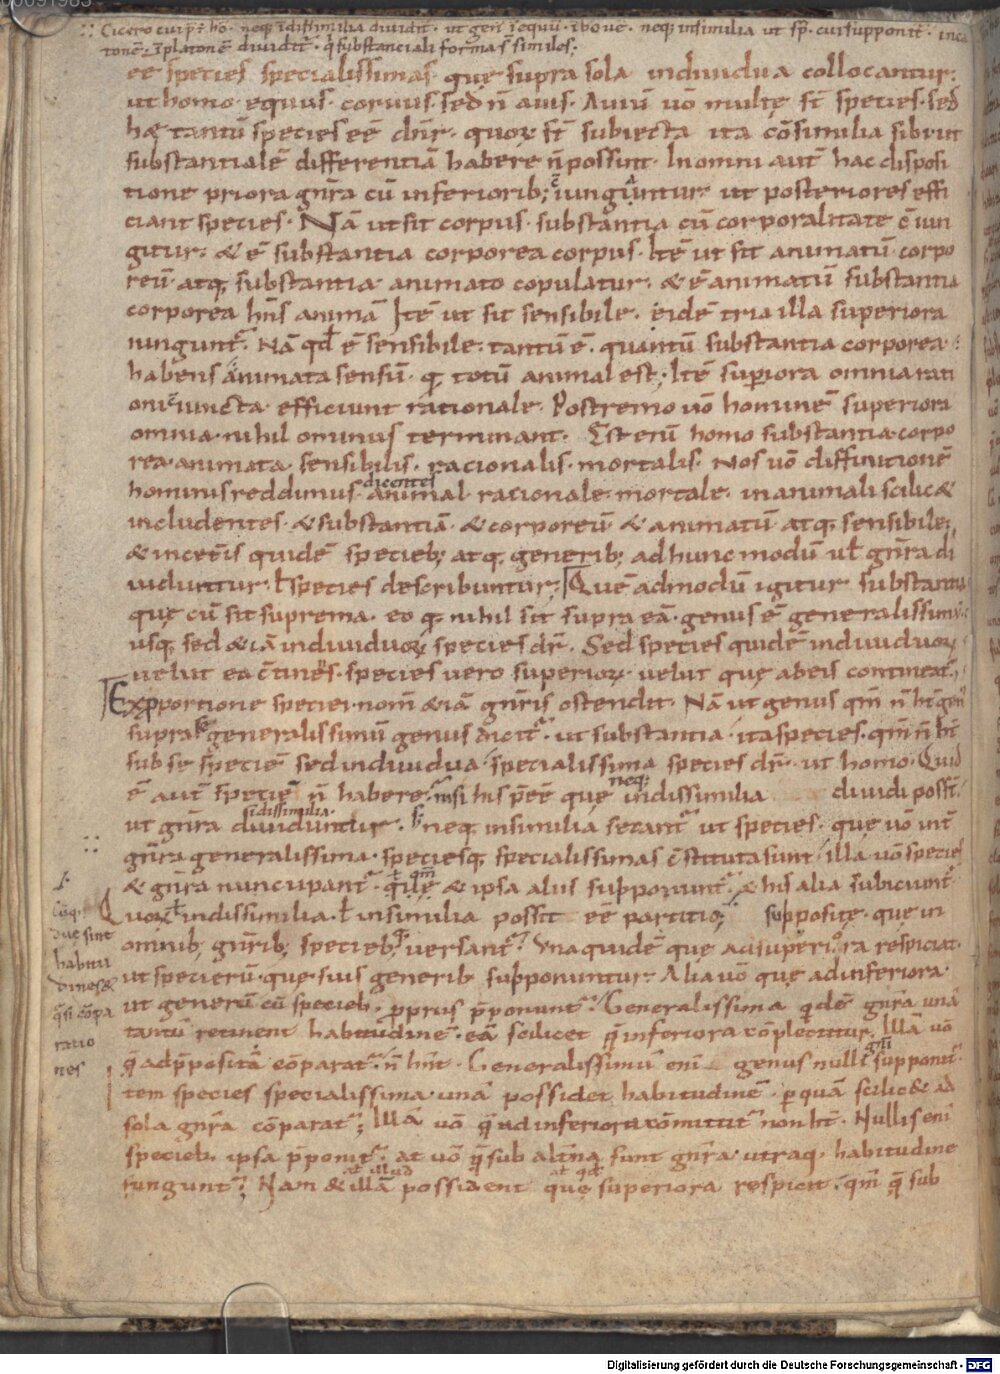 Cicero cui p̄t hō. neq; ī dissimilia dividit. ut gen' ī equū. ī bove. neq; insimilia ut sp̄. cui supponit. in ca
tonē. ī platonē dividit. q̄ substanciali forma sˉ similes;
eē species specialissimas. quę supra sola individua collocantur:
ut homo. equus. corvus. sed n̄ avis. Aviū vō multę s̄t species. sed
hę tantū species eē dn̄r. quoꝝ s̄t subiecta ita cōsimilia sibi ut
substantialē differentiā habere n̄ possint. In omni aut̄ hac disposi
tione priora gn̄ra cū inferiorib; iunguntur. ut posteriores effi
ciant species. Nā ut sit corpus. substantia cū corporalitate c̄iun
gitur. & ē substantia corporea corpus. Itē ut sit animatū. corpo
reū. atq; substantia. animato copulatur. & ē animatū substantia
corporea hn̄s animā Itē ut sit sensibile. eidē tria illa superiora
iungunt. Nā qd̄ ē sensibile. tantū ē. quantū substantia corporea.
habens animata sensū. q̄ totū animal est. Itē superiora omnia rati
oni iuncta efficiunt rationale. Postremo vō hominē superiora
omnia. nihil ominus terminant. Est enī homo substantia. corpo
rea. animata. sensibilis. racionalis. mortalis. Nos vō diffinitionē
dicentes
hominis reddimus. animal racionale. mortale. in animali scilic&
includentes. & substantiā. & corporeū. & animatū atq; sensibile;
& in cet̄is quidē specieb; atq; generib; ad hunc modū ut̄ gn̄ra di
viduntur. ł species describuntur; Quē admodū igitur substantia
quę cū sit suprema. eo q̄ nihil sit supra eā. genus ē generalissimū.
usq; sed & iā individuoꝝ species dr̄. Sed species quidē individuoꝝ
velut ea c̄tinēs. species vero superioꝝ. velut quę ab eis contineat̄.
Ex p̄portione speciei. nom̄ & iā gn̄ris ostendit. Nā ut genus qm̄ n̄ h̄t gen'
supra se generalissimū genus dicit̄. ut substantia. ita species. qm̄ n̄ h̄t
sub se speciē sed individua. specialissima species dr̄. ut homo. Quid
neq;
ē aut̄ speciē n̄ habere. nisi his p̄eē quę in dissimilia dividi possit.
si dissimilia.
ut gn̄ra dividuntur. neq; insimilia secant̄ ut species. quę vō int̄
gn̄ra generalissima. speciesq; specialissimas c̄stituta sunt. illa vō species
& gn̄ra nuncupant̄. & ipsa aliis supponunt̄. & his alia subiciunt̄.
Quoꝝ in dissimilia. ł insimilia possit eē partitio; suppositę. quę in
Cūq;
duę sint
habitu
dines &
q̄si cōpa
ratio
nes
omnib; gn̄rib; specieb; versant̄. Una quidē quę ad superiora respiciat.
ut specierū. quę suis generib; supponuntur. Alia vō quę ad inferiora
ut generū cū specieb; p̄priis p̄ponunt̄. Generalissima qdē gn̄ra unā
tantū retinent habitudinē. eā scilicet q̄ inferiora cōplectitur. Illā vō
q̄ ad p̄posita cōparat̄. n̄ hn̄t. Generalissimū enī genus nulli supponit̄.
Item species specialissima unā possidet habitudinē. p̄ quā scilic& ad
sola gn̄ra cōparat̄; Illā vō q̄ ad inferiora cōmittit̄ non h̄t. Nullis enī
specieb; ipsa p̄ponit̄; at vō q̄ sub alt̄na sunt gn̄ra. utraq; habitudine
funguntˉ; Nam & illā possident quę superiora respicit. qm̄ q̄ sub
Digitalisierung gefördert durch die Deutsche Forschungsgemeinschaft - DFG